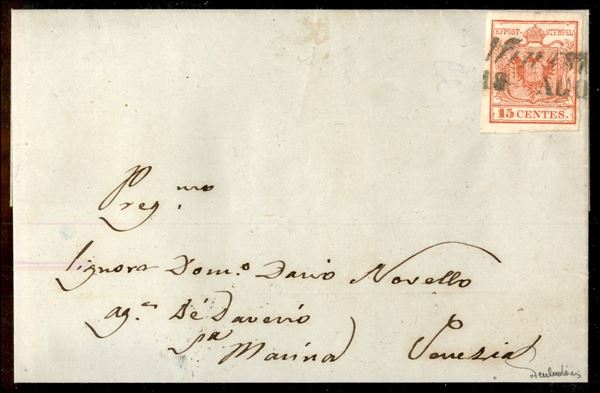 KKPOST-STEMPEL
18 AGO
15 CENTES.
Preg.mo
Signora Dom.o Dario Novello
ag.n Dé Daverió
pa
Marina Venezia